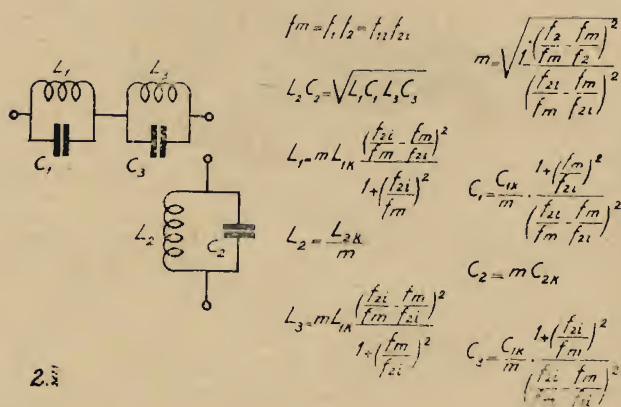 L₁ L₃
C₁ C₃
L₂ C₂
fm = f₁ f₂ = f₁ᵢ f₂ᵢ
L₂ C₂ = √(L₁ C₁ L₃ C₃)
L₁ = m L₁ₖ (f₂ᵢ/fm - fm/f₂ᵢ)² / (1 + (f₂ᵢ/fm)²)
L₂ = L₂ₖ/m
L₃ = m L₁ₖ (f₂ᵢ/fm - fm/f₂ᵢ)² / (1 + (fm/f₂ᵢ)²)
m = √(1 · (f₂/fm - fm/f₂)² / (f₂ᵢ/fm - fm/f₂ᵢ)²)
C₁ = C₁ₖ/m · (1 + (fm/f₂ᵢ)²) / (f₂ᵢ/fm - fm/f₂ᵢ)²
C₂ = m C₂ₖ
C₃ = C₁ₖ/m · (1 + (f₂ᵢ/fm)²) / (f₂ᵢ/fm - fm/f₂ᵢ)²
2.